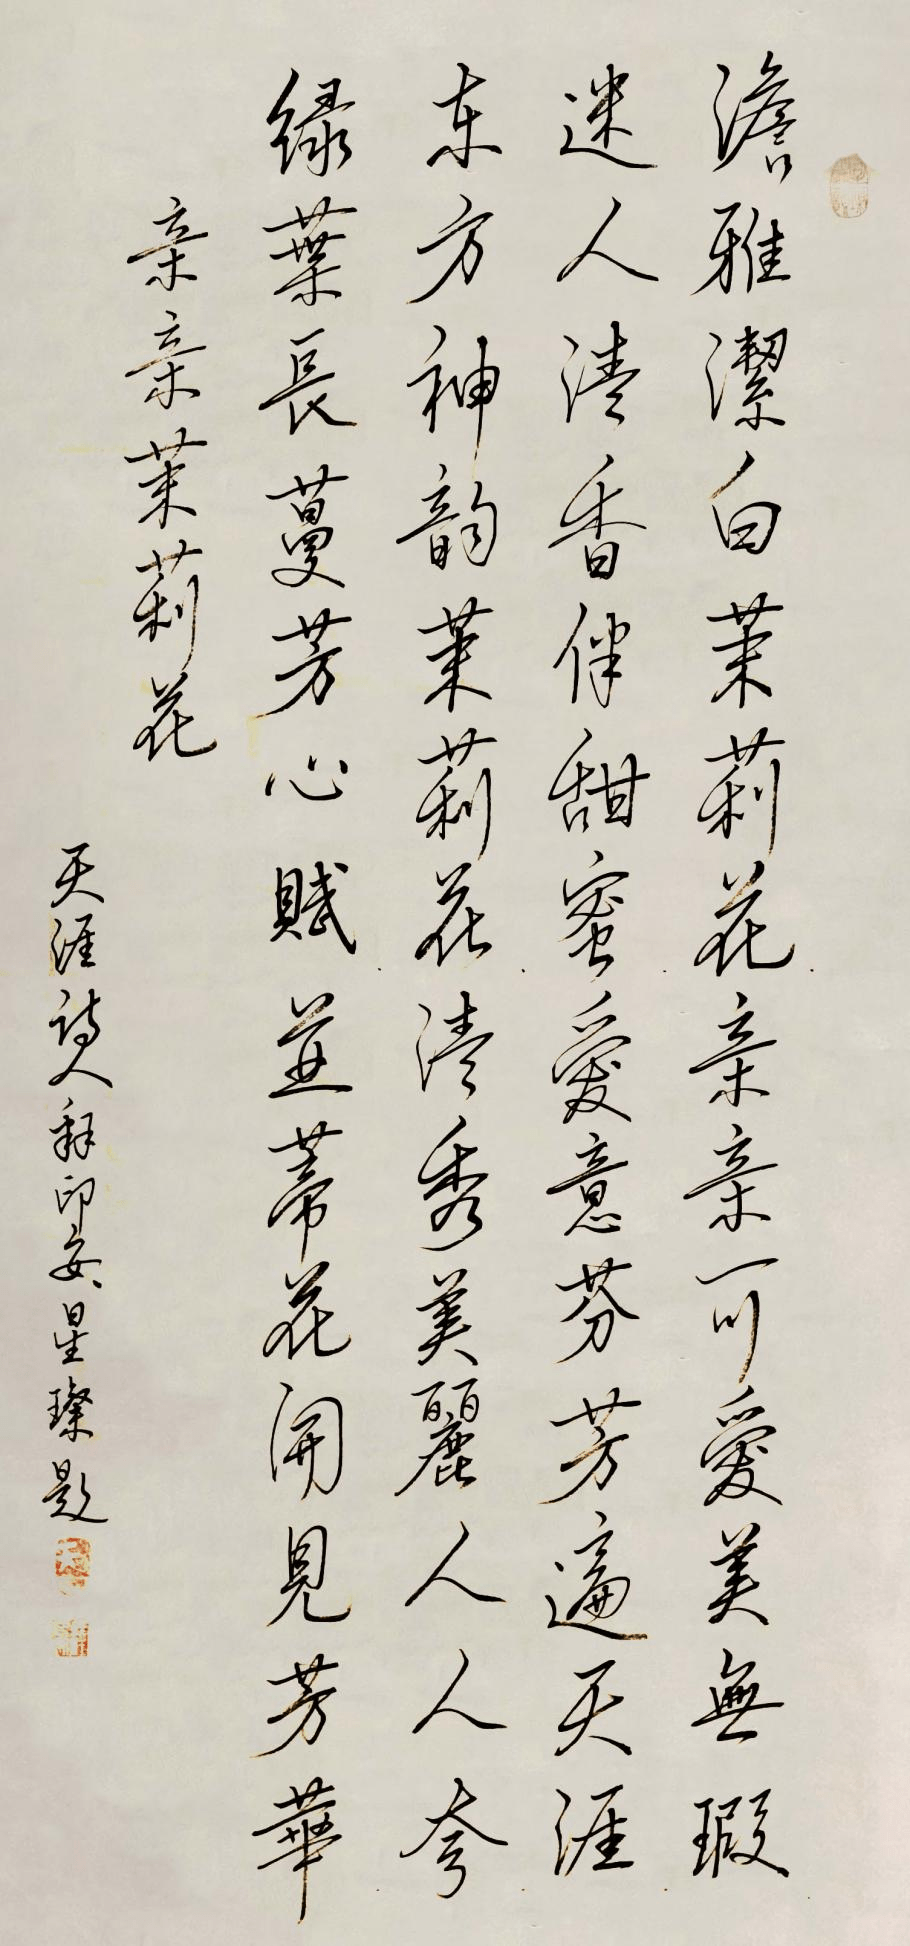 澹雅潔白茉莉花亲亲可爱美無瑕
迷人清香伴甜蜜爱意芬芳遍天涯
东方神韵茉莉花清秀美麗人人夸
绿葉長蔓芳心賦並蒂花開見芳華
亲亲茉莉花
天涯诗人释印安星璨题